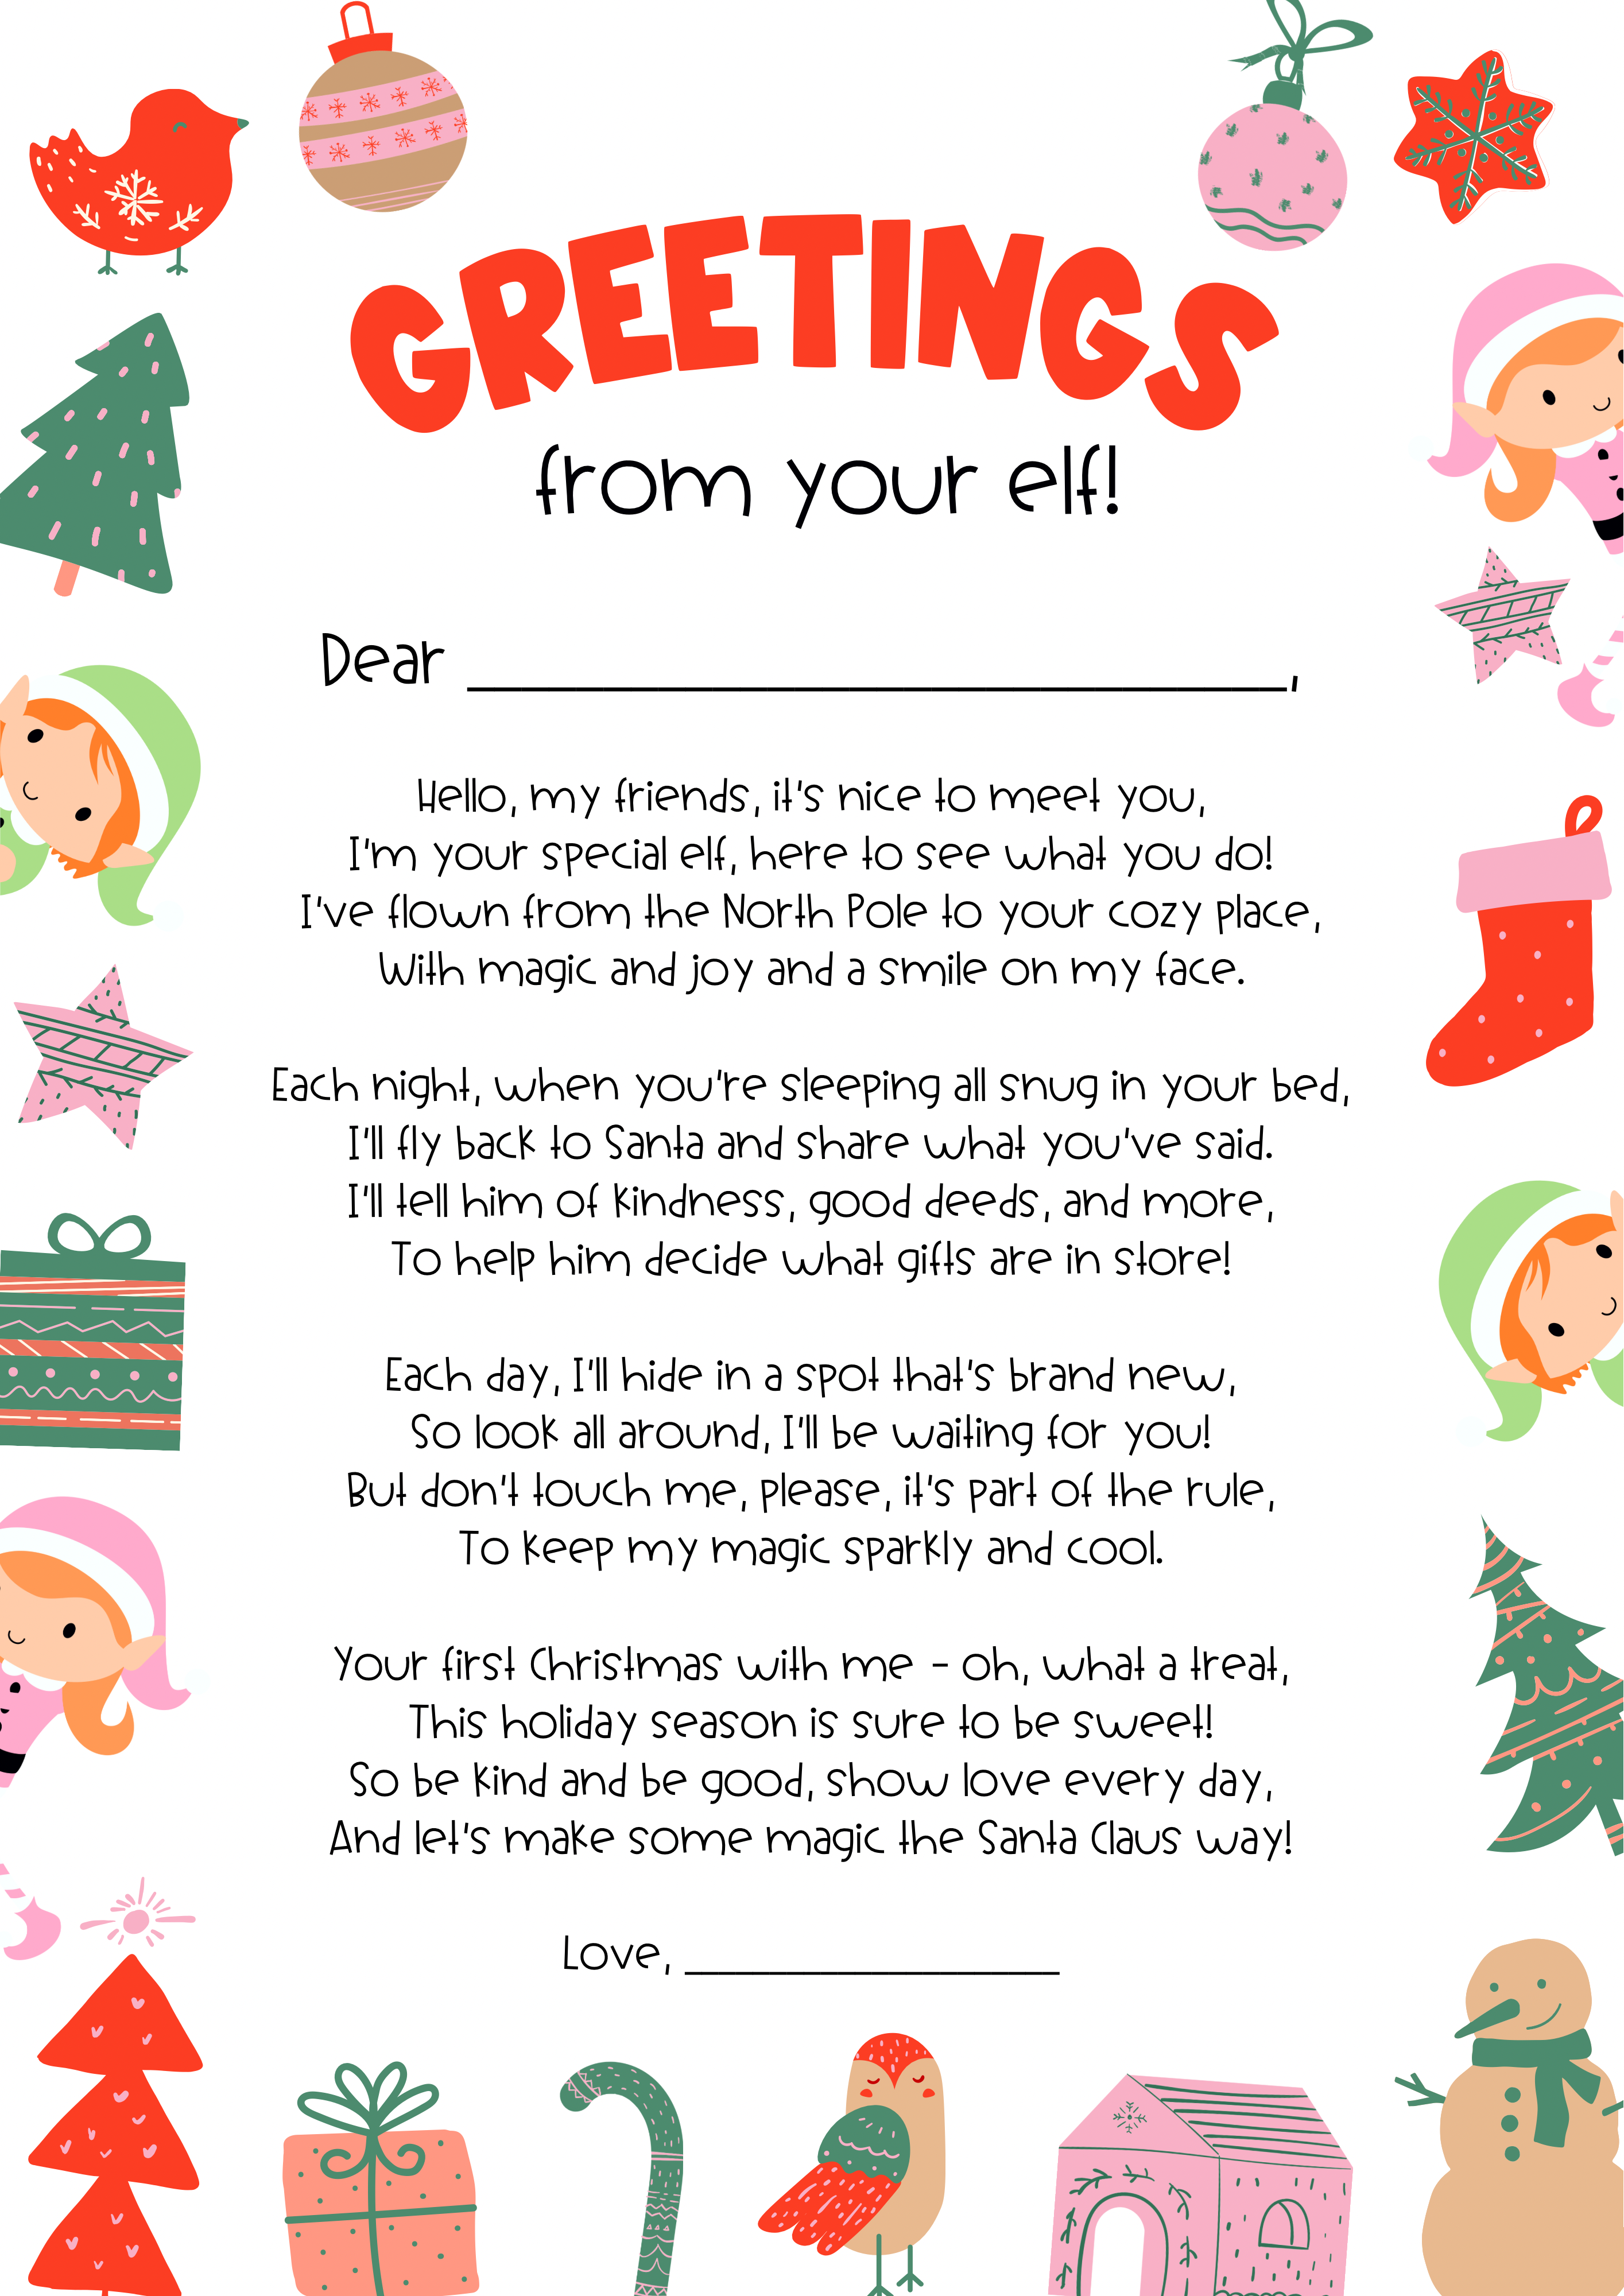 GREETINGS
from your elf!
Dear ______________________________,
Hello, my friends, it's nice to meet you,
I'm your special elf, here to see what you do!
I've flown from the North Pole to your cozy place,
With magic and joy and a smile on my face.
Each night, when you're sleeping all snug in your bed,
I'll fly back to Santa and share what you've said.
I'll tell him of kindness, good deeds, and more,
To help him decide what gifts are in store!
Each day, I'll hide in a spot that's brand new,
So look all around, I'll be waiting for you!
But don't touch me, please, it's part of the rule,
To keep my magic sparkly and cool.
Your first Christmas with me - oh, what a treat,
This holiday season is sure to be sweet!
So be kind and be good, show love every day,
And let's make some magic the Santa Claus way!
Love, __________________